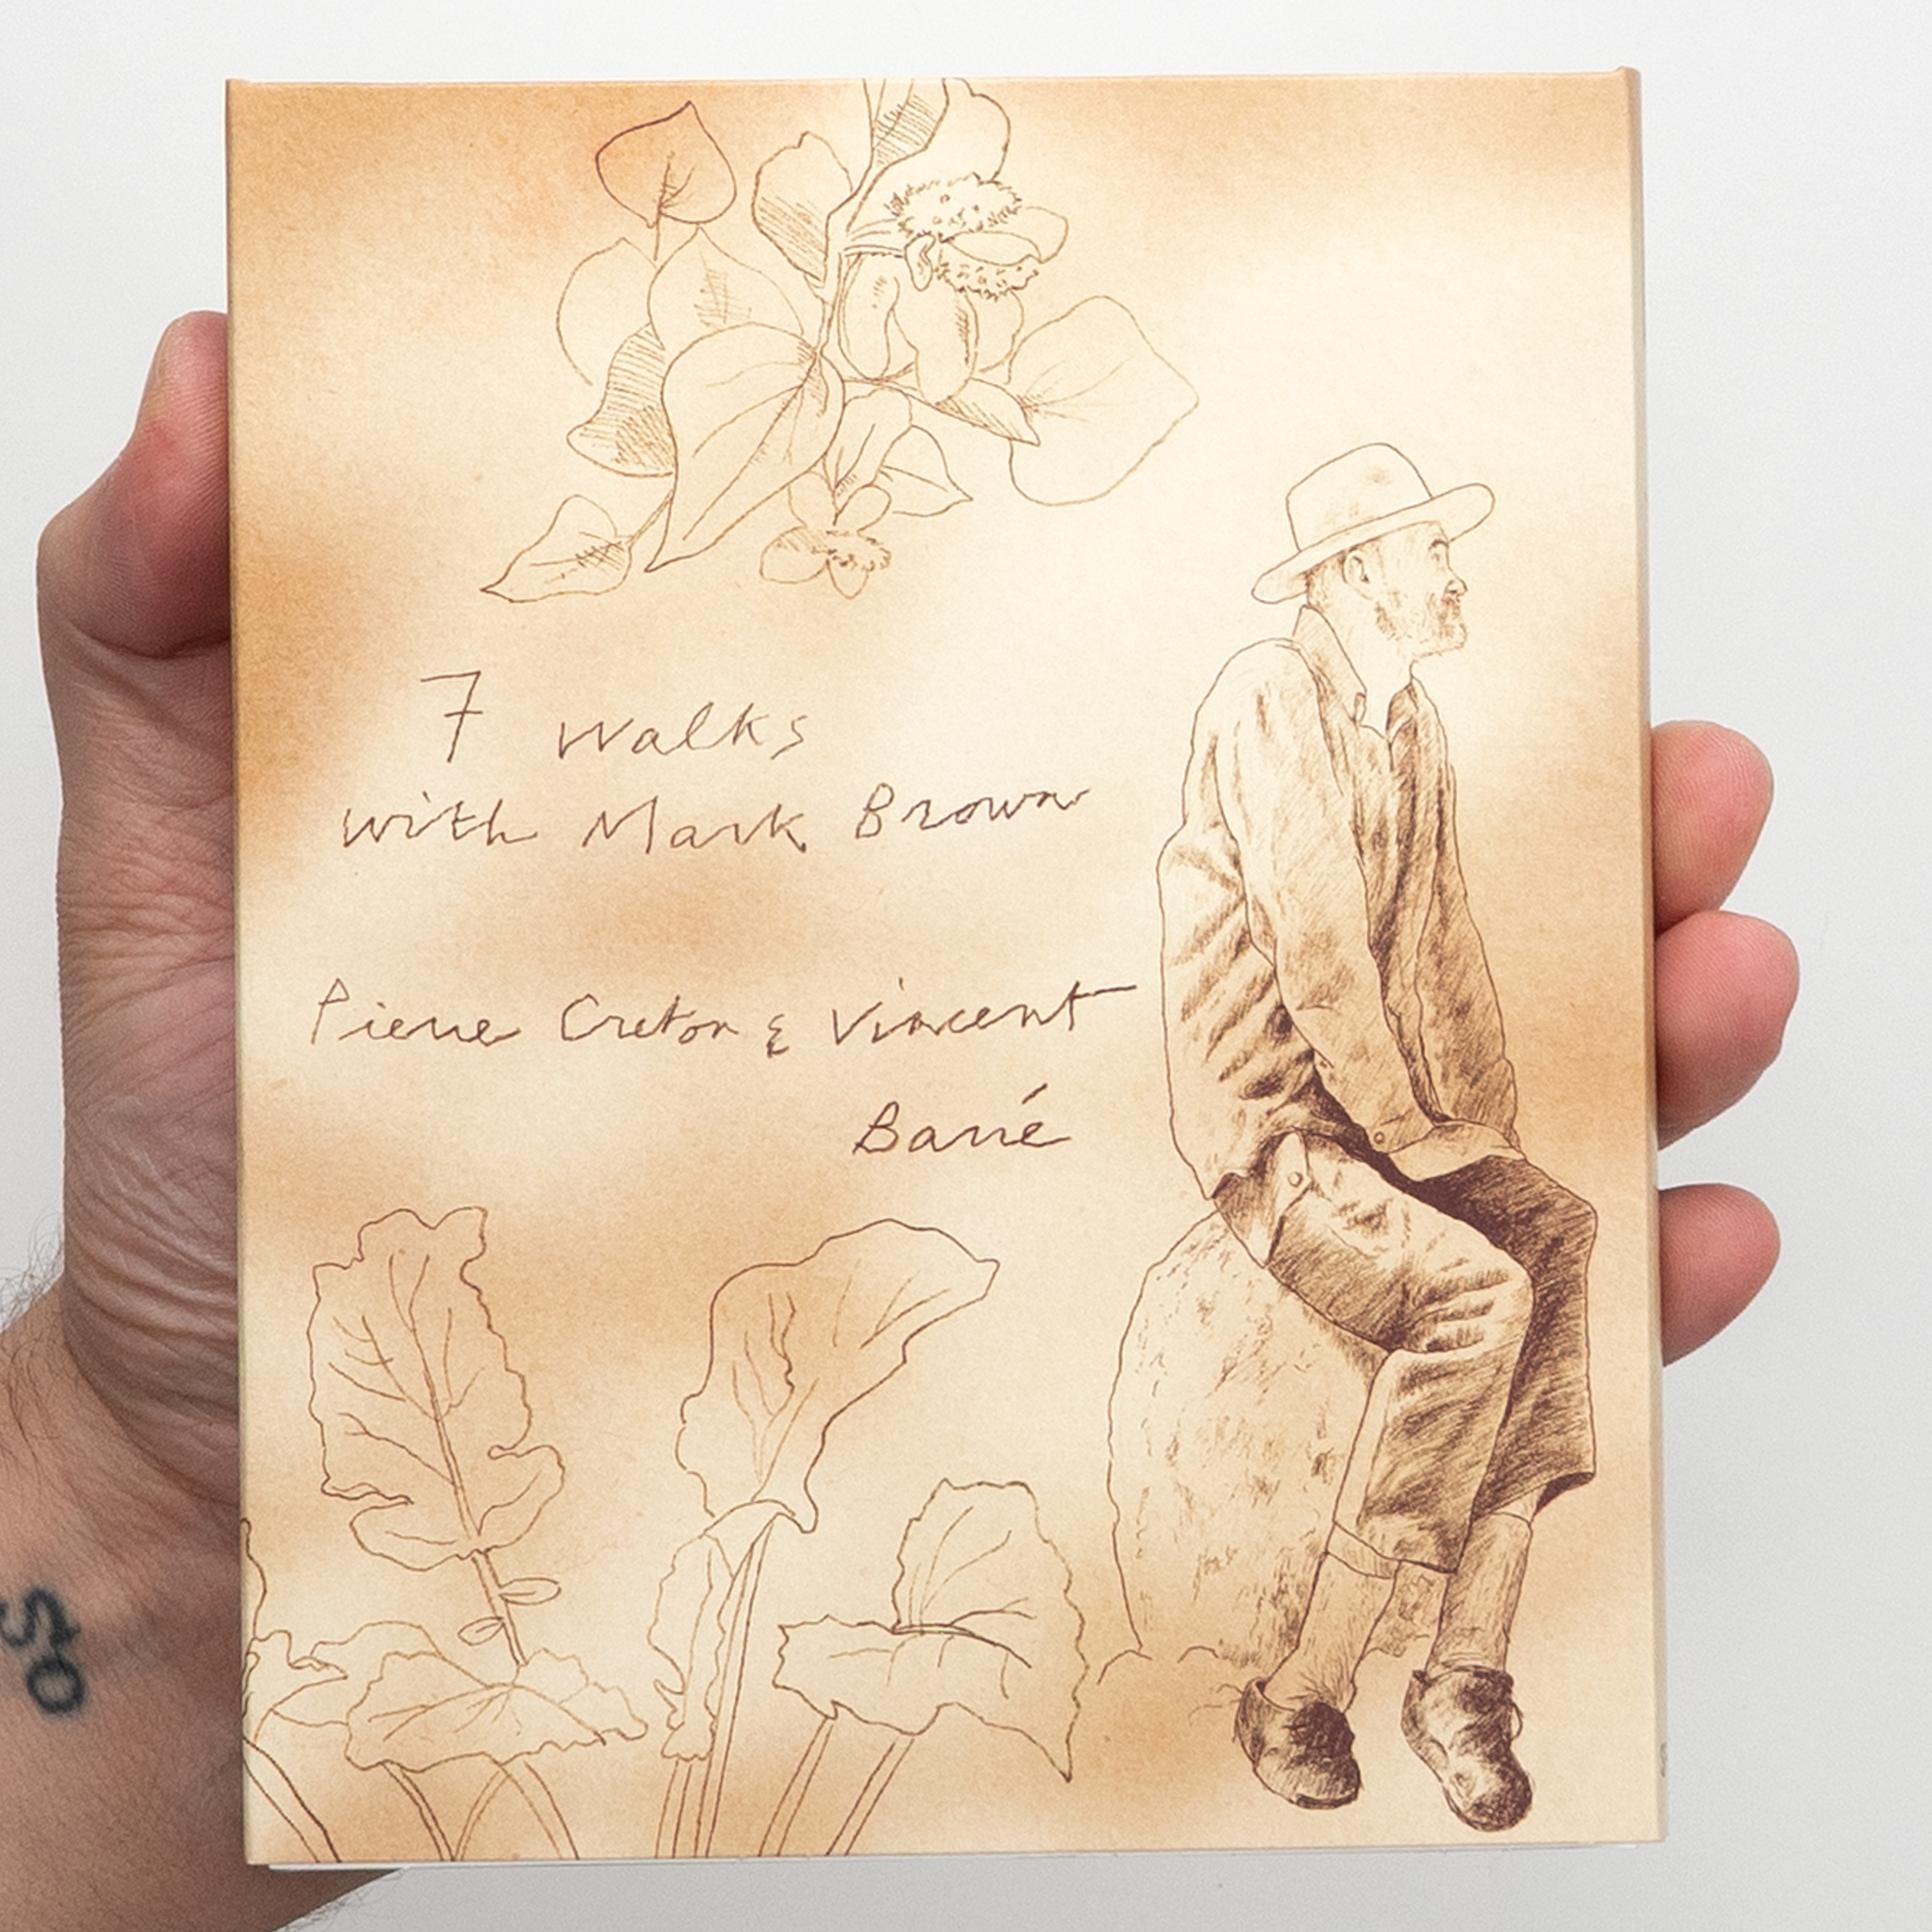 7 walks
with Mark Brown
Pierre Creton & Vincent
Barré